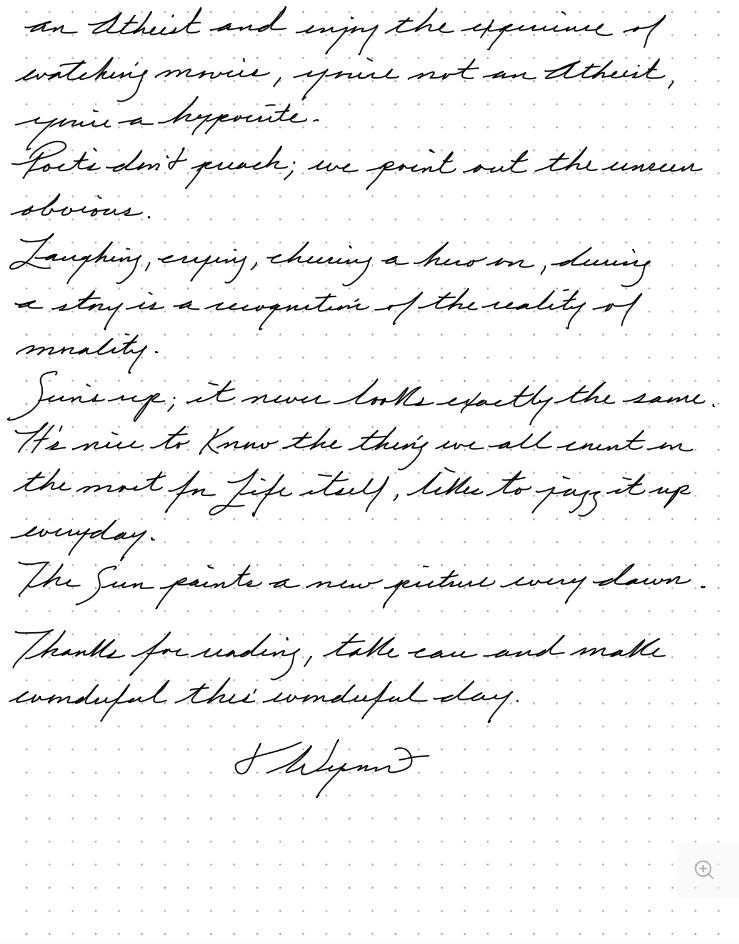 an Atheist and enjoy the experience of
watching movies, you're not an Atheist,
you're a hypocrite.
Poets don't preach; we point out the unseen
obvious.
Laughing, crying, cheering a hero on, during
a story is a recognition of the reality of
morality.
Sun's up; it never looks exactly the same.
It's nice to know the thing we all count on
the most for Life itself, likes to jazz it up
everyday.
The Sun paints a new picture every dawn.
Thanks for reading, take care and make
wonderful this wonderful day.